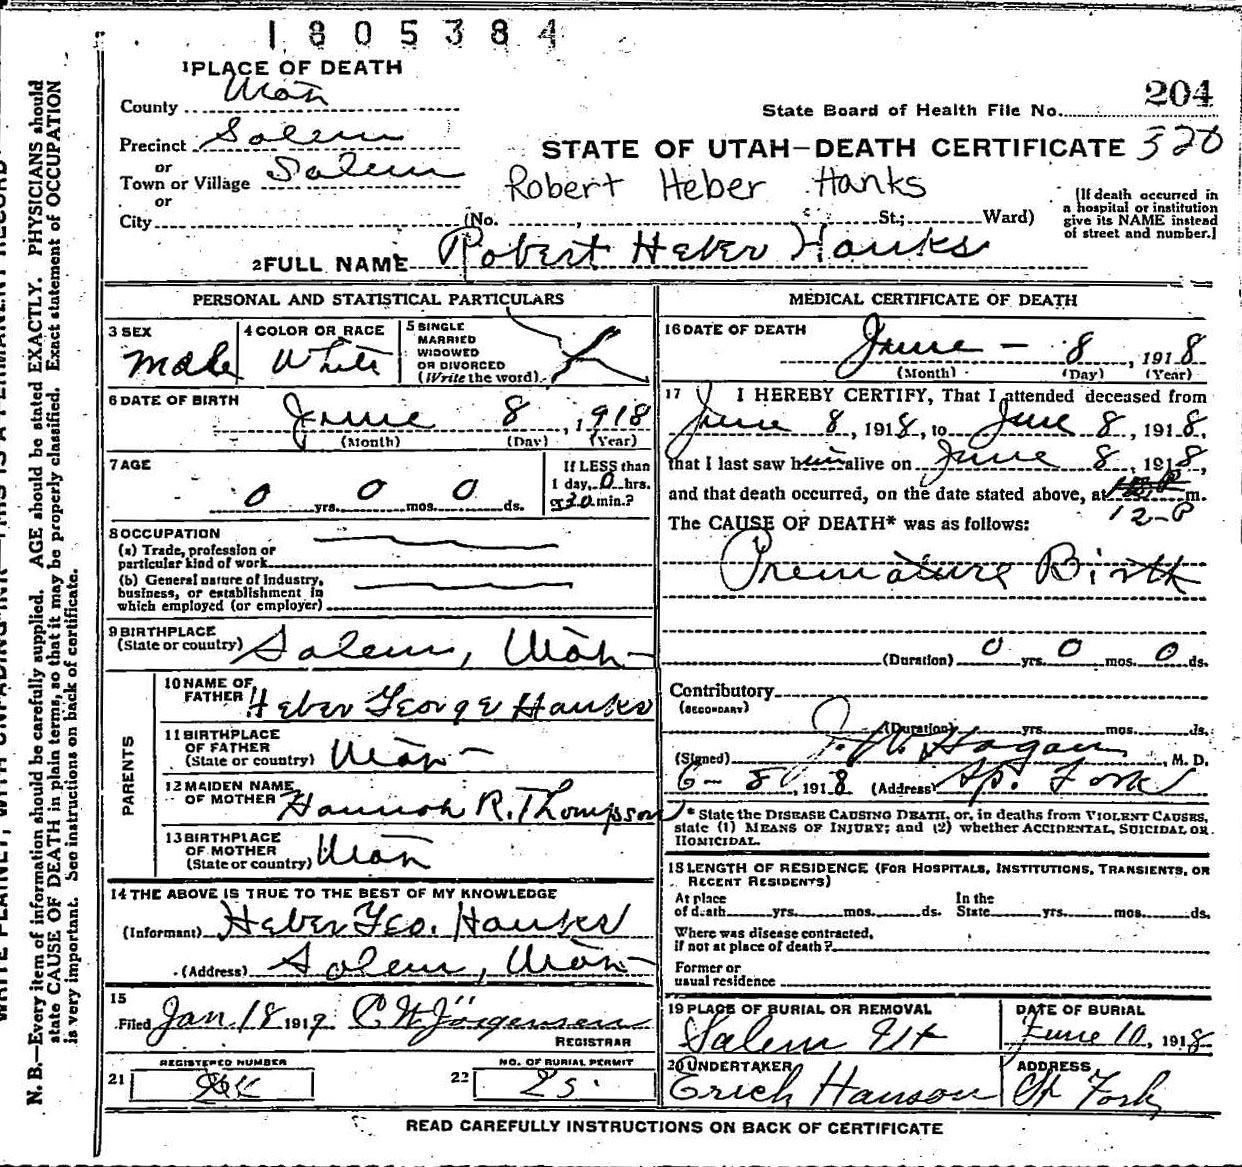 1805384
1 PLACE OF DEATH
County Utah
204
State Board of Health File No.
Precinct Salem
STATE OF UTAH—DEATH CERTIFICATE 320
or
Town or Village Salem
Robert Heber Hanks
or
City (No. St.; Ward)
[If death occurred in
a hospital or institution
give its NAME instead
of street and number.]
2 FULL NAME Robert Heber Hanks
PERSONAL AND STATISTICAL PARTICULARS
3 SEX
male
4 COLOR OR RACE
White
5 SINGLE
MARRIED
WIDOWED
OR DIVORCED
(Write the word)
6 DATE OF BIRTH
June 8, 1918
(Month) (Day) (Year)
7 AGE
0 yrs. 0 mos. 0 ds.
If LESS than
1 day, 0 hrs.
or 30 min.?
8 OCCUPATION
(a) Trade, profession or
particular kind of work
(b) General nature of Industry,
business, or establishment in
which employed (or employer)
9 BIRTHPLACE
(State or country) Salem, Utah
PARENTS
10 NAME OF
FATHER Heber George Hanks
11 BIRTHPLACE
OF FATHER
(State or country) Utah
12 MAIDEN NAME
OF MOTHER Hannah R. Thompson
13 BIRTHPLACE
OF MOTHER
(State or country) Utah
14 THE ABOVE IS TRUE TO THE BEST OF MY KNOWLEDGE
(Informant) Heber Geo. Hanks
(Address) Salem, Utah
15
Filed Jan. 18 1919 C W Jörgensen
REGISTRAR
REGISTERED NUMBER
21
NO. OF BURIAL PERMIT
22 25.
MEDICAL CERTIFICATE OF DEATH
16 DATE OF DEATH
June — 8, 1918
(Month) (Day) (Year)
17 I HEREBY CERTIFY, That I attended deceased from
June 8, 1918, to June 8, 1918,
that I last saw him alive on June 8, 1918,
and that death occurred, on the date stated above, at m.
12-P
The CAUSE OF DEATH* was as follows:
Premature Birth
(Duration) 0 yrs. 0 mos. 0 ds.
Contributory
(SECONDARY)
(Duration) yrs. mos. ds.
(Signed) Hagan, M. D.
6-8, 1918 (Address) Sp. Fork
* State the DISEASE CAUSING DEATH, or, in deaths from VIOLENT CAUSES,
state (1) MEANS OF INJURY; and (2) whether ACCIDENTAL, SUICIDAL OR
HOMICIDAL.
18 LENGTH OF RESIDENCE (FOR HOSPITALS, INSTITUTIONS, TRANSIENTS, OR
RECENT RESIDENTS)
At place In the
of death yrs. mos. ds. State yrs. mos. ds.
Where was disease contracted,
if not at place of death?
Former or
usual residence
19 PLACE OF BURIAL OR REMOVAL
Salem Ut
DATE OF BURIAL
June 10, 1918
20 UNDERTAKER
Erich Hanson
ADDRESS
Sp Fork
READ CAREFULLY INSTRUCTIONS ON BACK OF CERTIFICATE
N. B.—Every item of information should be carefully supplied. AGE should be stated EXACTLY. PHYSICIANS should
state CAUSE OF DEATH in plain terms, so that it may be properly classified. Exact statement of OCCUPATION
is very important. See instructions on back of certificate.